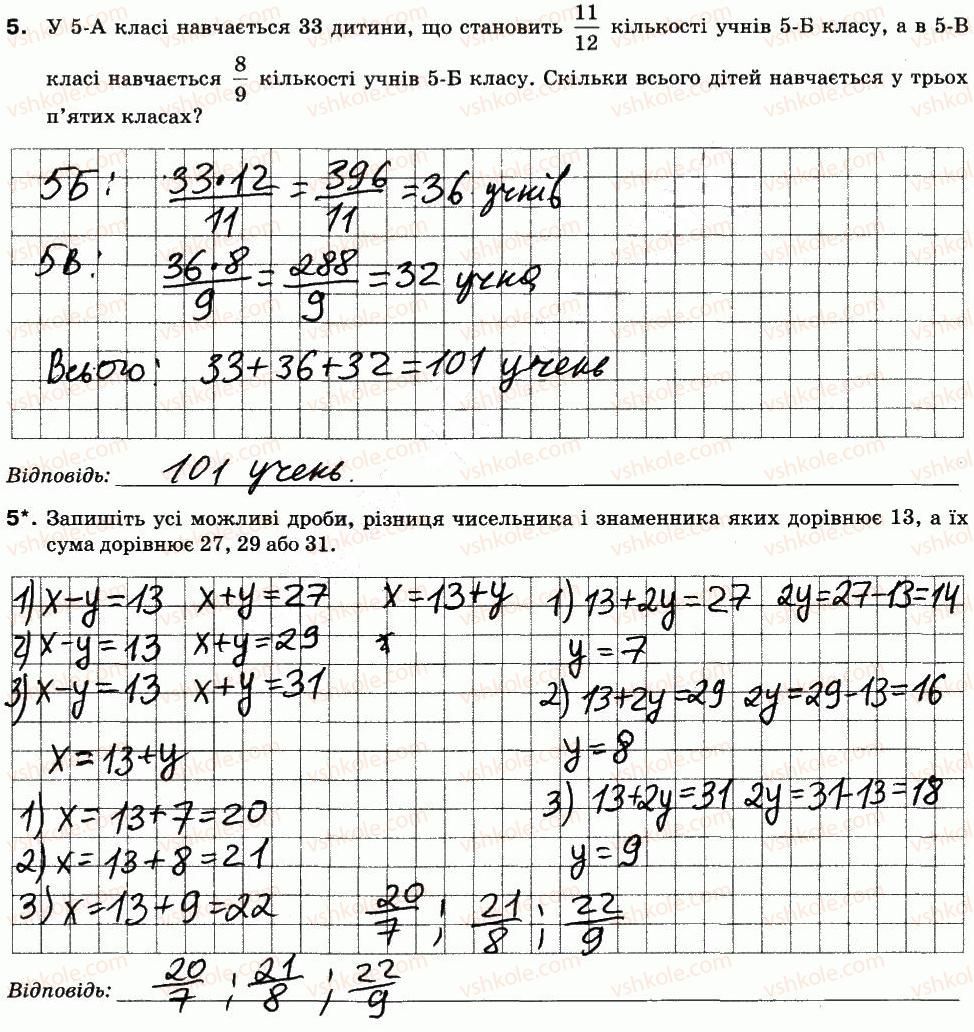 5. У 5-А класі навчається 33 дитини, що становить 11/12 кількості учнів 5-Б класу, а в 5-В
класі навчається 8/9 кількості учнів 5-Б класу. Скільки всього дітей навчається у трьох
п’ятих класах?
5Б: 33·12/11 = 396/11 = 36 учнів
5В: 36·8/9 = 288/9 = 32 учня
Всього: 33+36+32=101 учень
Відповідь: 101 учень.
5*. Запишіть усі можливі дроби, різниця чисельника і знаменника яких дорівнює 13, а їх
сума дорівнює 27, 29 або 31.
1) x-y=13 x+y=27 x=13+y 1) 13+2y=27 2y=27-13=14
2) x-y=13 x+y=29 y=7
3) x-y=13 x+y=31 2) 13+2y=29 2y=29-13=16
x=13+y y=8
1) x=13+7=20 3) 13+2y=31 2y=31-13=18
2) x=13+8=21 y=9
3) x=13+9=22 20/7 ; 21/8 ; 22/9
Відповідь: 20/7 ; 21/8 ; 22/9